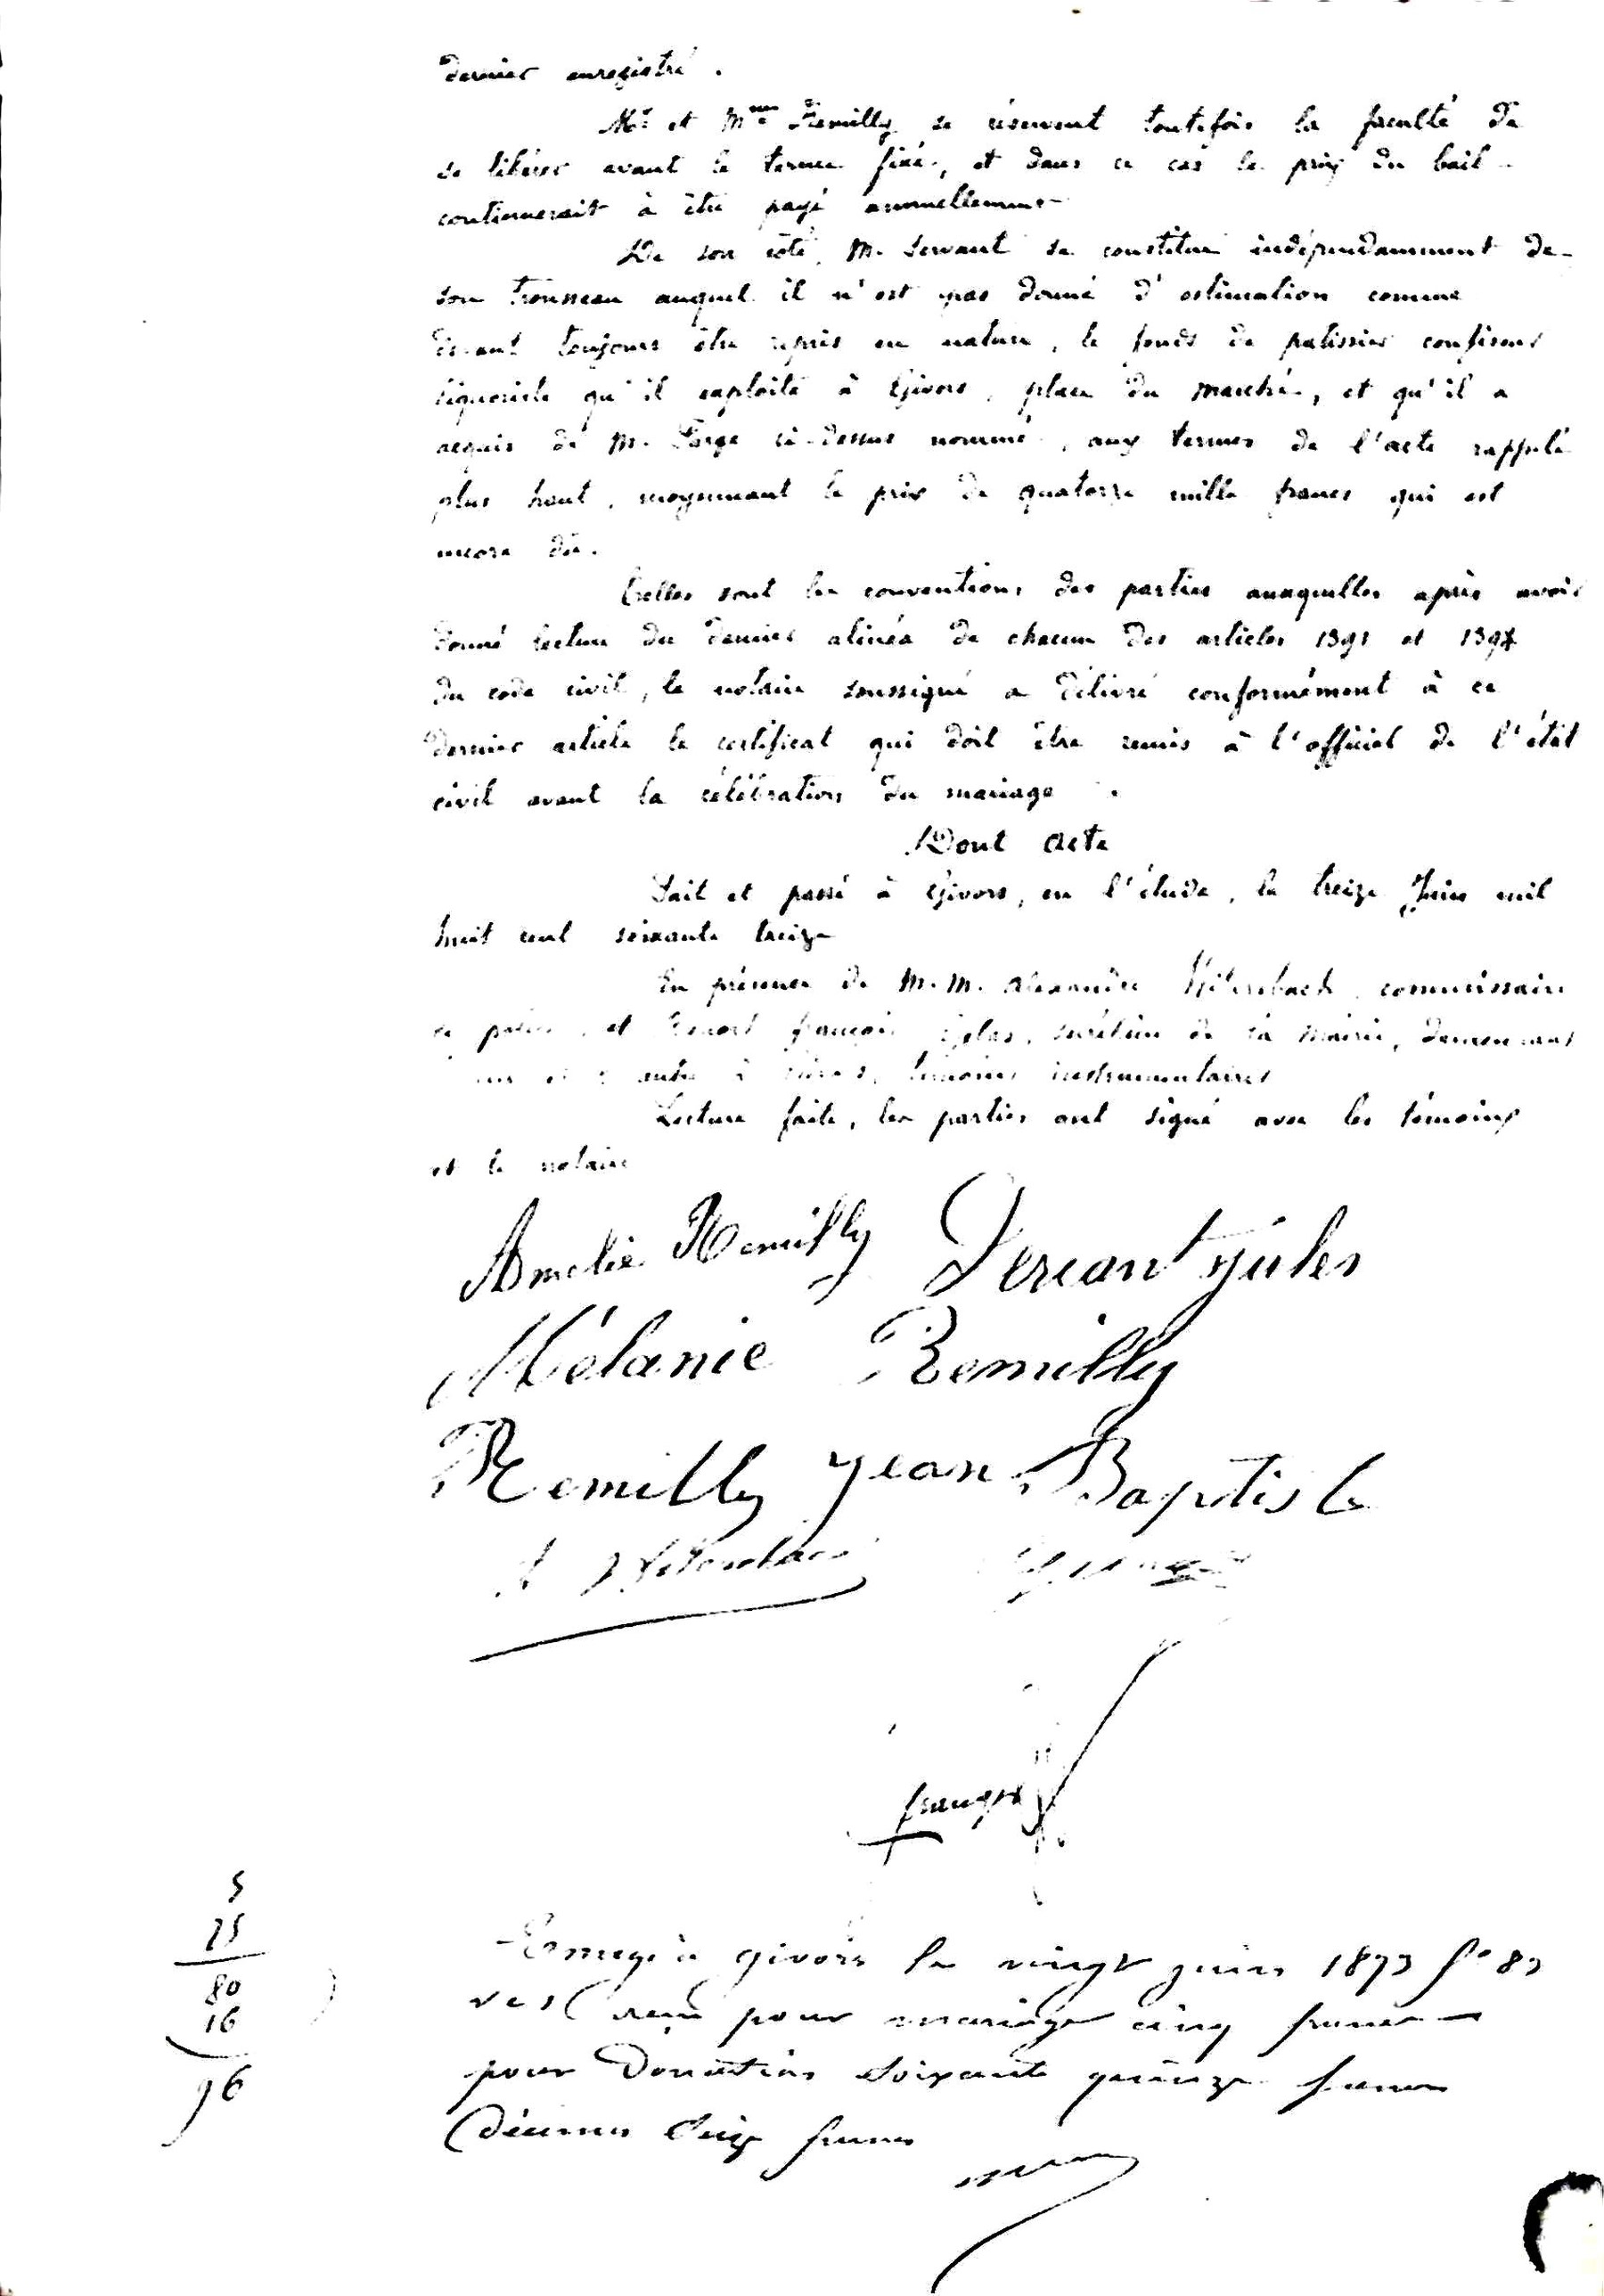 dernier enregistré.
Mr et Mme Remilly se réservent toutefois la faculté de
se libérer avant le terme fixé, et dans ce cas le prix du bail
continuerait à être payé annuellement
De son côté, M. Servant se constitue indépendamment de
son trousseau auquel il n'est pas donné d'estimation comme
devant toujours être repris en nature, le fonds de patissier confiseur
liquoriste qu'il exploite à Givors, place du marché, et qu'il a
acquis de M. Farge ci-dessus nommé, aux termes de l'acte rappelé
plus haut, moyennant le prix de quatorze mille francs qui est
encore dû.
Telles sont les conventions des parties auxquelles après avoir
donné lecture du dernier alinéa de chacun des articles 1391 et 1394
du code civil, le notaire soussigné a délivré conformément à ce
dernier article le certificat qui doit être remis à l'officier de l'état
civil avant la célébration du mariage.
Dont Acte
Fait et passé à Givors, en l'étude, le treize Juin mil
huit cent soixante treize
En présence de M.M. Alexandre commissaire
de police, et françois secrétaire de la Mairie, demeurant
à Givors, témoins instrumentaires
Lecture faite, les parties ont signé avec les témoins
et le notaire
Amelie Remilly Servant Jules
Mélanie Remilly
Remilly Jean Baptiste
5
75
80
16
96
Enregé à Givors le vingt juin 1873 fo 83
reçu pour mariage cinq francs
pour Donation soixante quinze francs
Décimes Seize francs